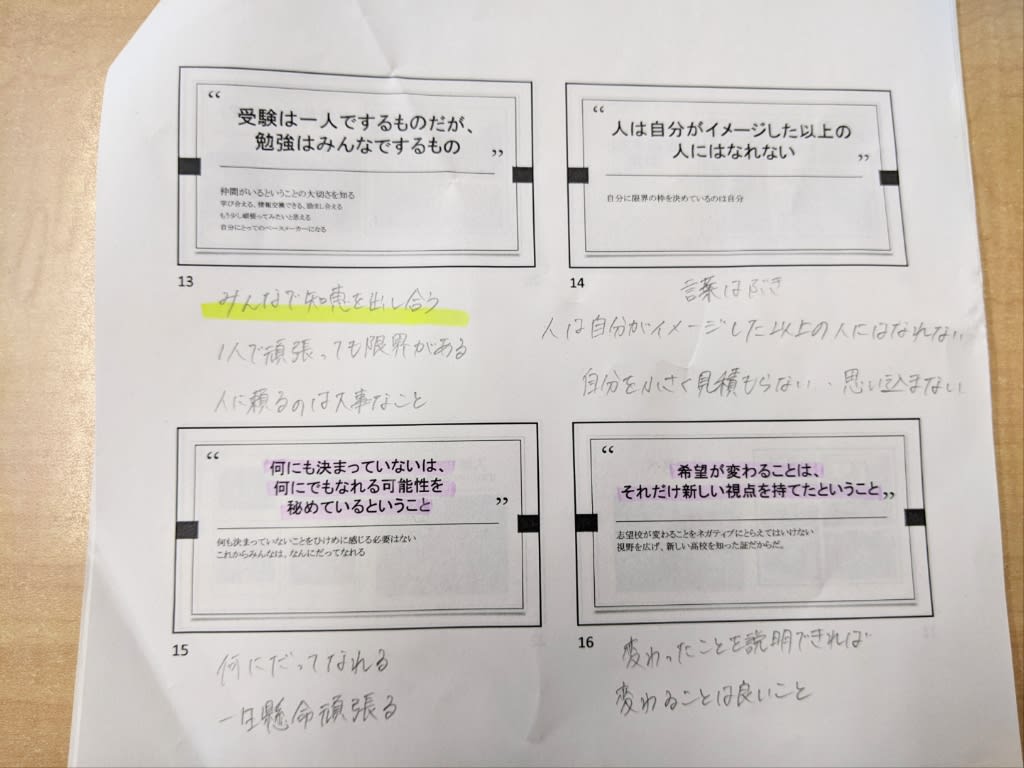 “
受験は一人でするものだが、
勉強はみんなでするもの
”
仲間がいるということの大切さを知る
学び合える、情報交換できる、励まし合える
もう少し頑張ってみたいと思える
自分にとってのペースメーカーになる
13
みんなで知恵を出し合う
1人で頑張っても限界がある
人に頼るのは大事なこと
“
人は自分がイメージした以上の
人にはなれない
”
自分に限界の枠を決めているのは自分
14
言葉はぶき
人は自分がイメージした以上の人にはなれない
自分を小さく見積もらない・思い込まない
“
何にも決まっていないは、
何にでもなれる可能性を
秘めているということ
”
何も決まっていないことをひけめに感じる必要はない
これからみんなは、なんにだってなれる
15
何にだってなれる
一生懸命頑張る
“
希望が変わることは、
それだけ新しい視点を持てたということ
”
志望校が変わることをネガティブにとらえてはいけない
視野を広げ、新しい高校を知った証だからだ。
16
変わったことを説明できれば
変わることは良いこと